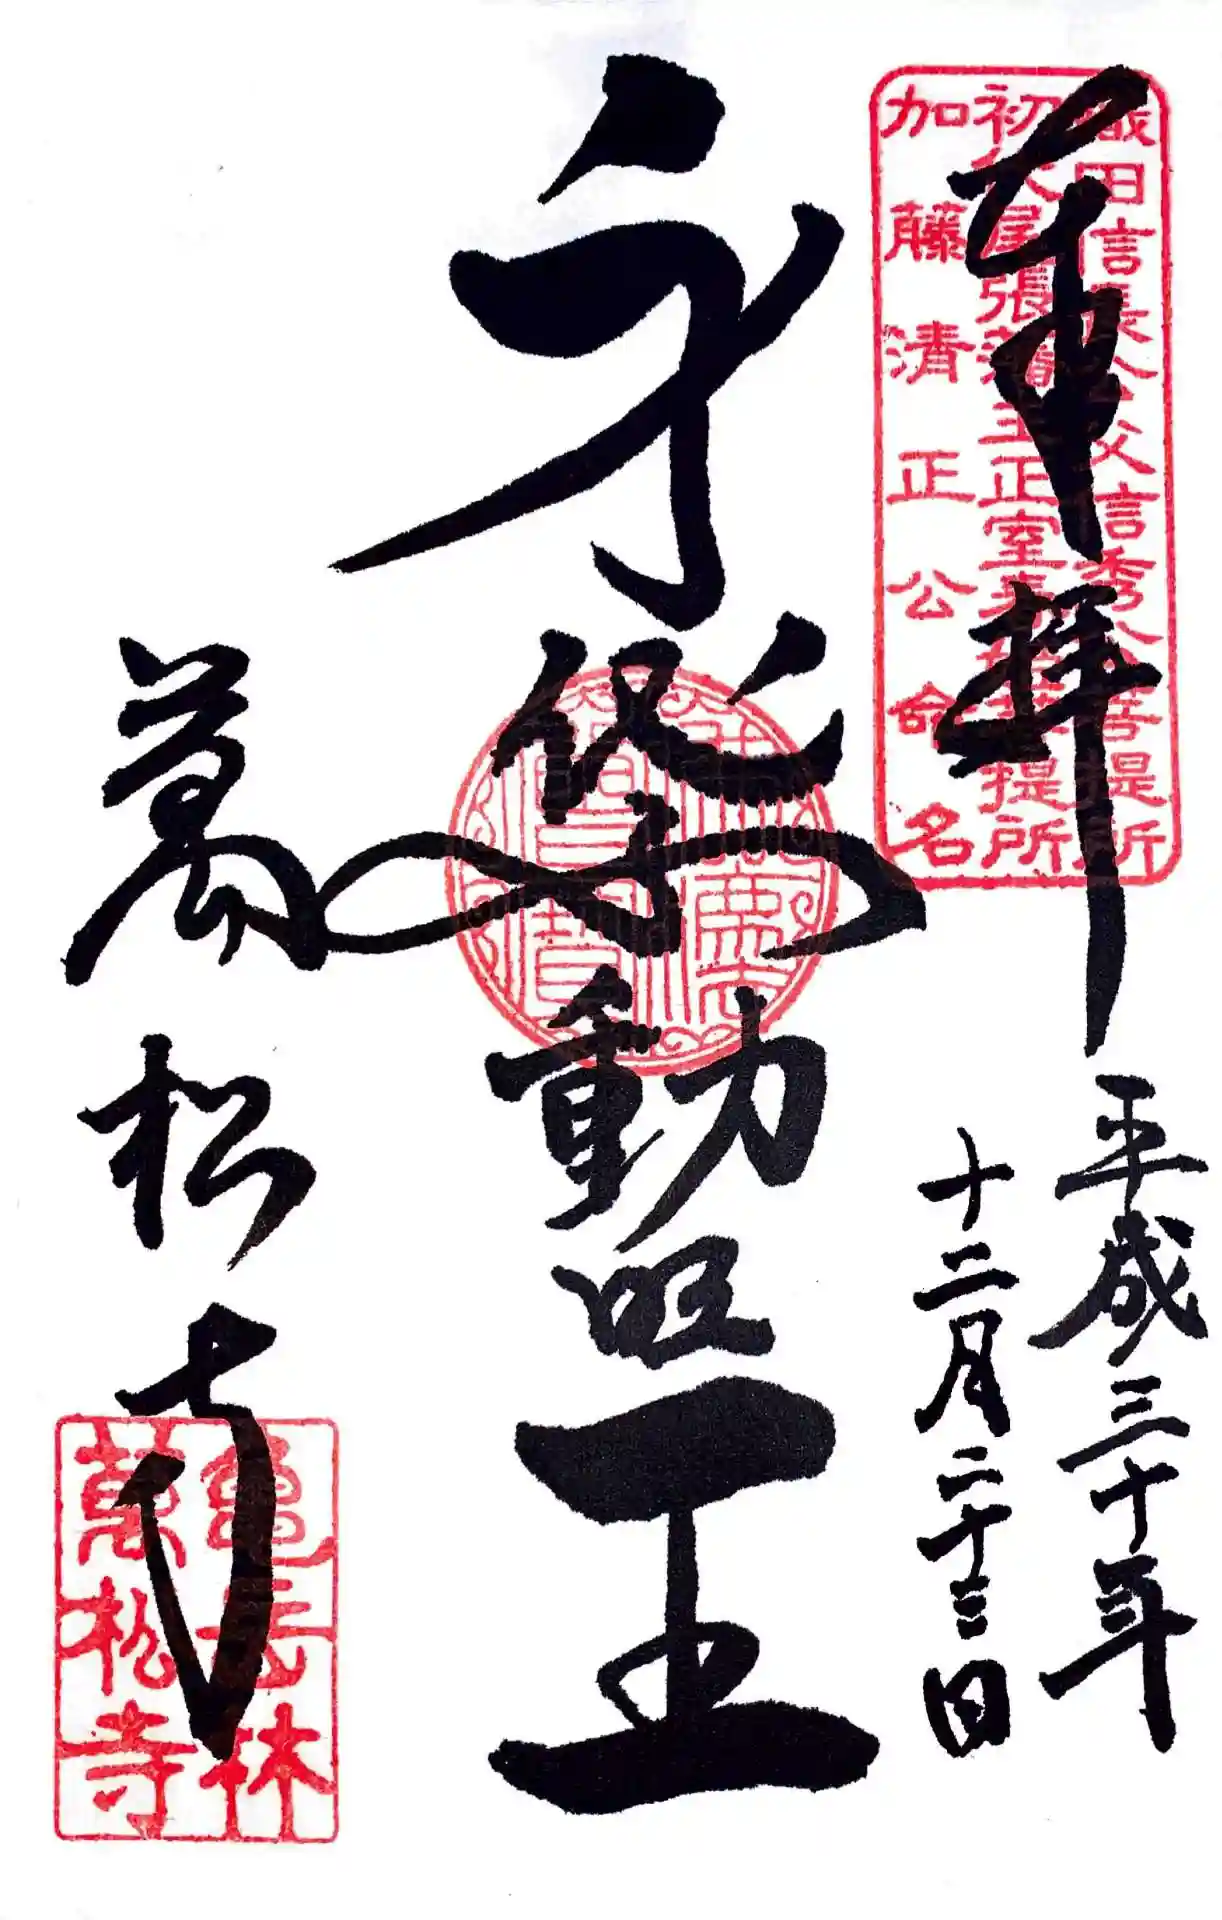 織田信長公父信秀公菩提所
初代尾張藩主正室春姫菩提所
加藤清正公命名
奉拝
平成三十年
十二月二十三日
身代不動明王
萬松寺
龜岳林
萬松寺